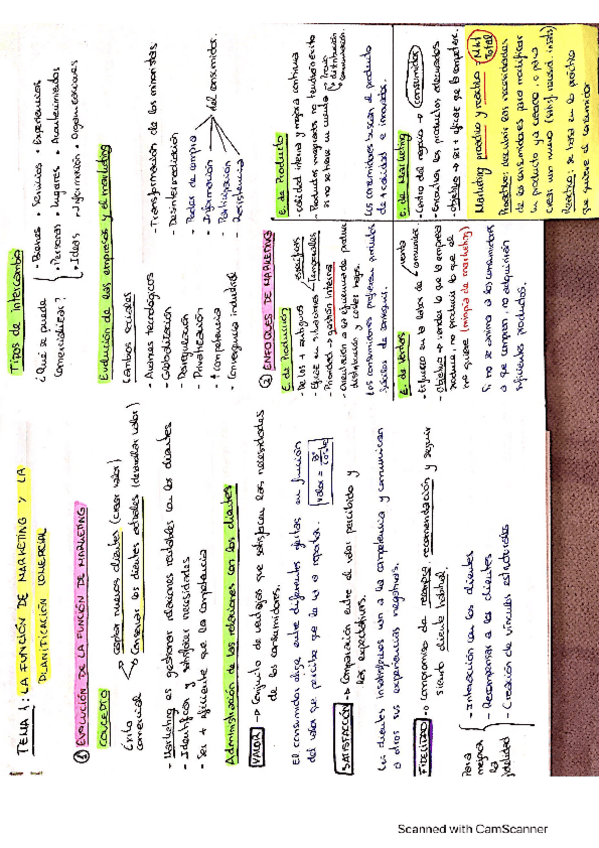 TEMA 1: LA FUNCIÓN DE MARKETING Y LA
PLANIFICACIÓN COMERCIAL
① EVOLUCIÓN DE LA FUNCIÓN DE MARKETING
CONCEPTO
Éxito comercial
→ captar nuevos clientes (crear valor)
→ Conservar los clientes actuales (desarrollar valor)
- Marketing es gestionar relaciones rentables con los clientes
- Identificar y satisfacer necesidades
- Ser + eficiente que la competencia
Administración de las relaciones con los clientes
VALOR → Conjunto de ventajas que satisfacen las necesidades
de los consumidores.
El consumidor elige entre diferentes ofertas en función
del valor que percibe que le va a reportar.
SATISFACCIÓN → Comparación entre el valor percibido y
las expectativas.
Los clientes insatisfechos van a la competencia y comunican
a otros sus experiencias negativas.
FIDELIDAD → compromiso de recompra, recomendación y seguir
siendo cliente habitual.
Para mejorar la fidelidad
- Interacción con los clientes
- Recompensar a los clientes
- Creación de vínculos estructurales
TIPOS de intercambio
¿Qué se puede comercializar?
• Bienes • Servicios • Experiencias
• Personas • Lugares • Acontecimientos
• Ideas • Información • Organizaciones
Evolución de las empresas y el marketing
Cambios sociales
- Avances tecnológicos
- Globalización
- Desregulación
- Privatización
- ↑ competencia
- Convergencia industrial
- Transformación de los minoristas
- Desintermediación
- Poder de compra
- Información
- Participación
- Resistencia
del consumidor.
② ENFOQUES DE MARKETING
E. de Producción
- De los + antiguos
- Eficaz en situaciones específicas temporales
- Prioridad → gestión interna
- Orientación a la eficiencia de produc.
distribución y costes bajos.
Los consumidores prefieren productos
fáciles de conseguir.
E. de Producto
- calidad interna y mejora continua
- Productos imaginados no tendrán éxito
si no se tiene en cuenta
Precio
distribución
comunicación.
Los consumidores buscan el producto
de + calidad e innovador.
E. de Ventas
- Esfuerzo en la labor de venta comunic.
- Objetivo → vender lo que la empresa
produce, no producir lo que se
quiere (miopía de marketing)
Si no se anima a los consumidores
a que compren, no adquirirán
suficientes productos.
E. de Marketing
- Centro del negocio → consumidor
- Encontrar los productos adecuados
- Objetivo → ser + eficaz que la compet.
Marketing proactivo y reactivo → Mkt Total